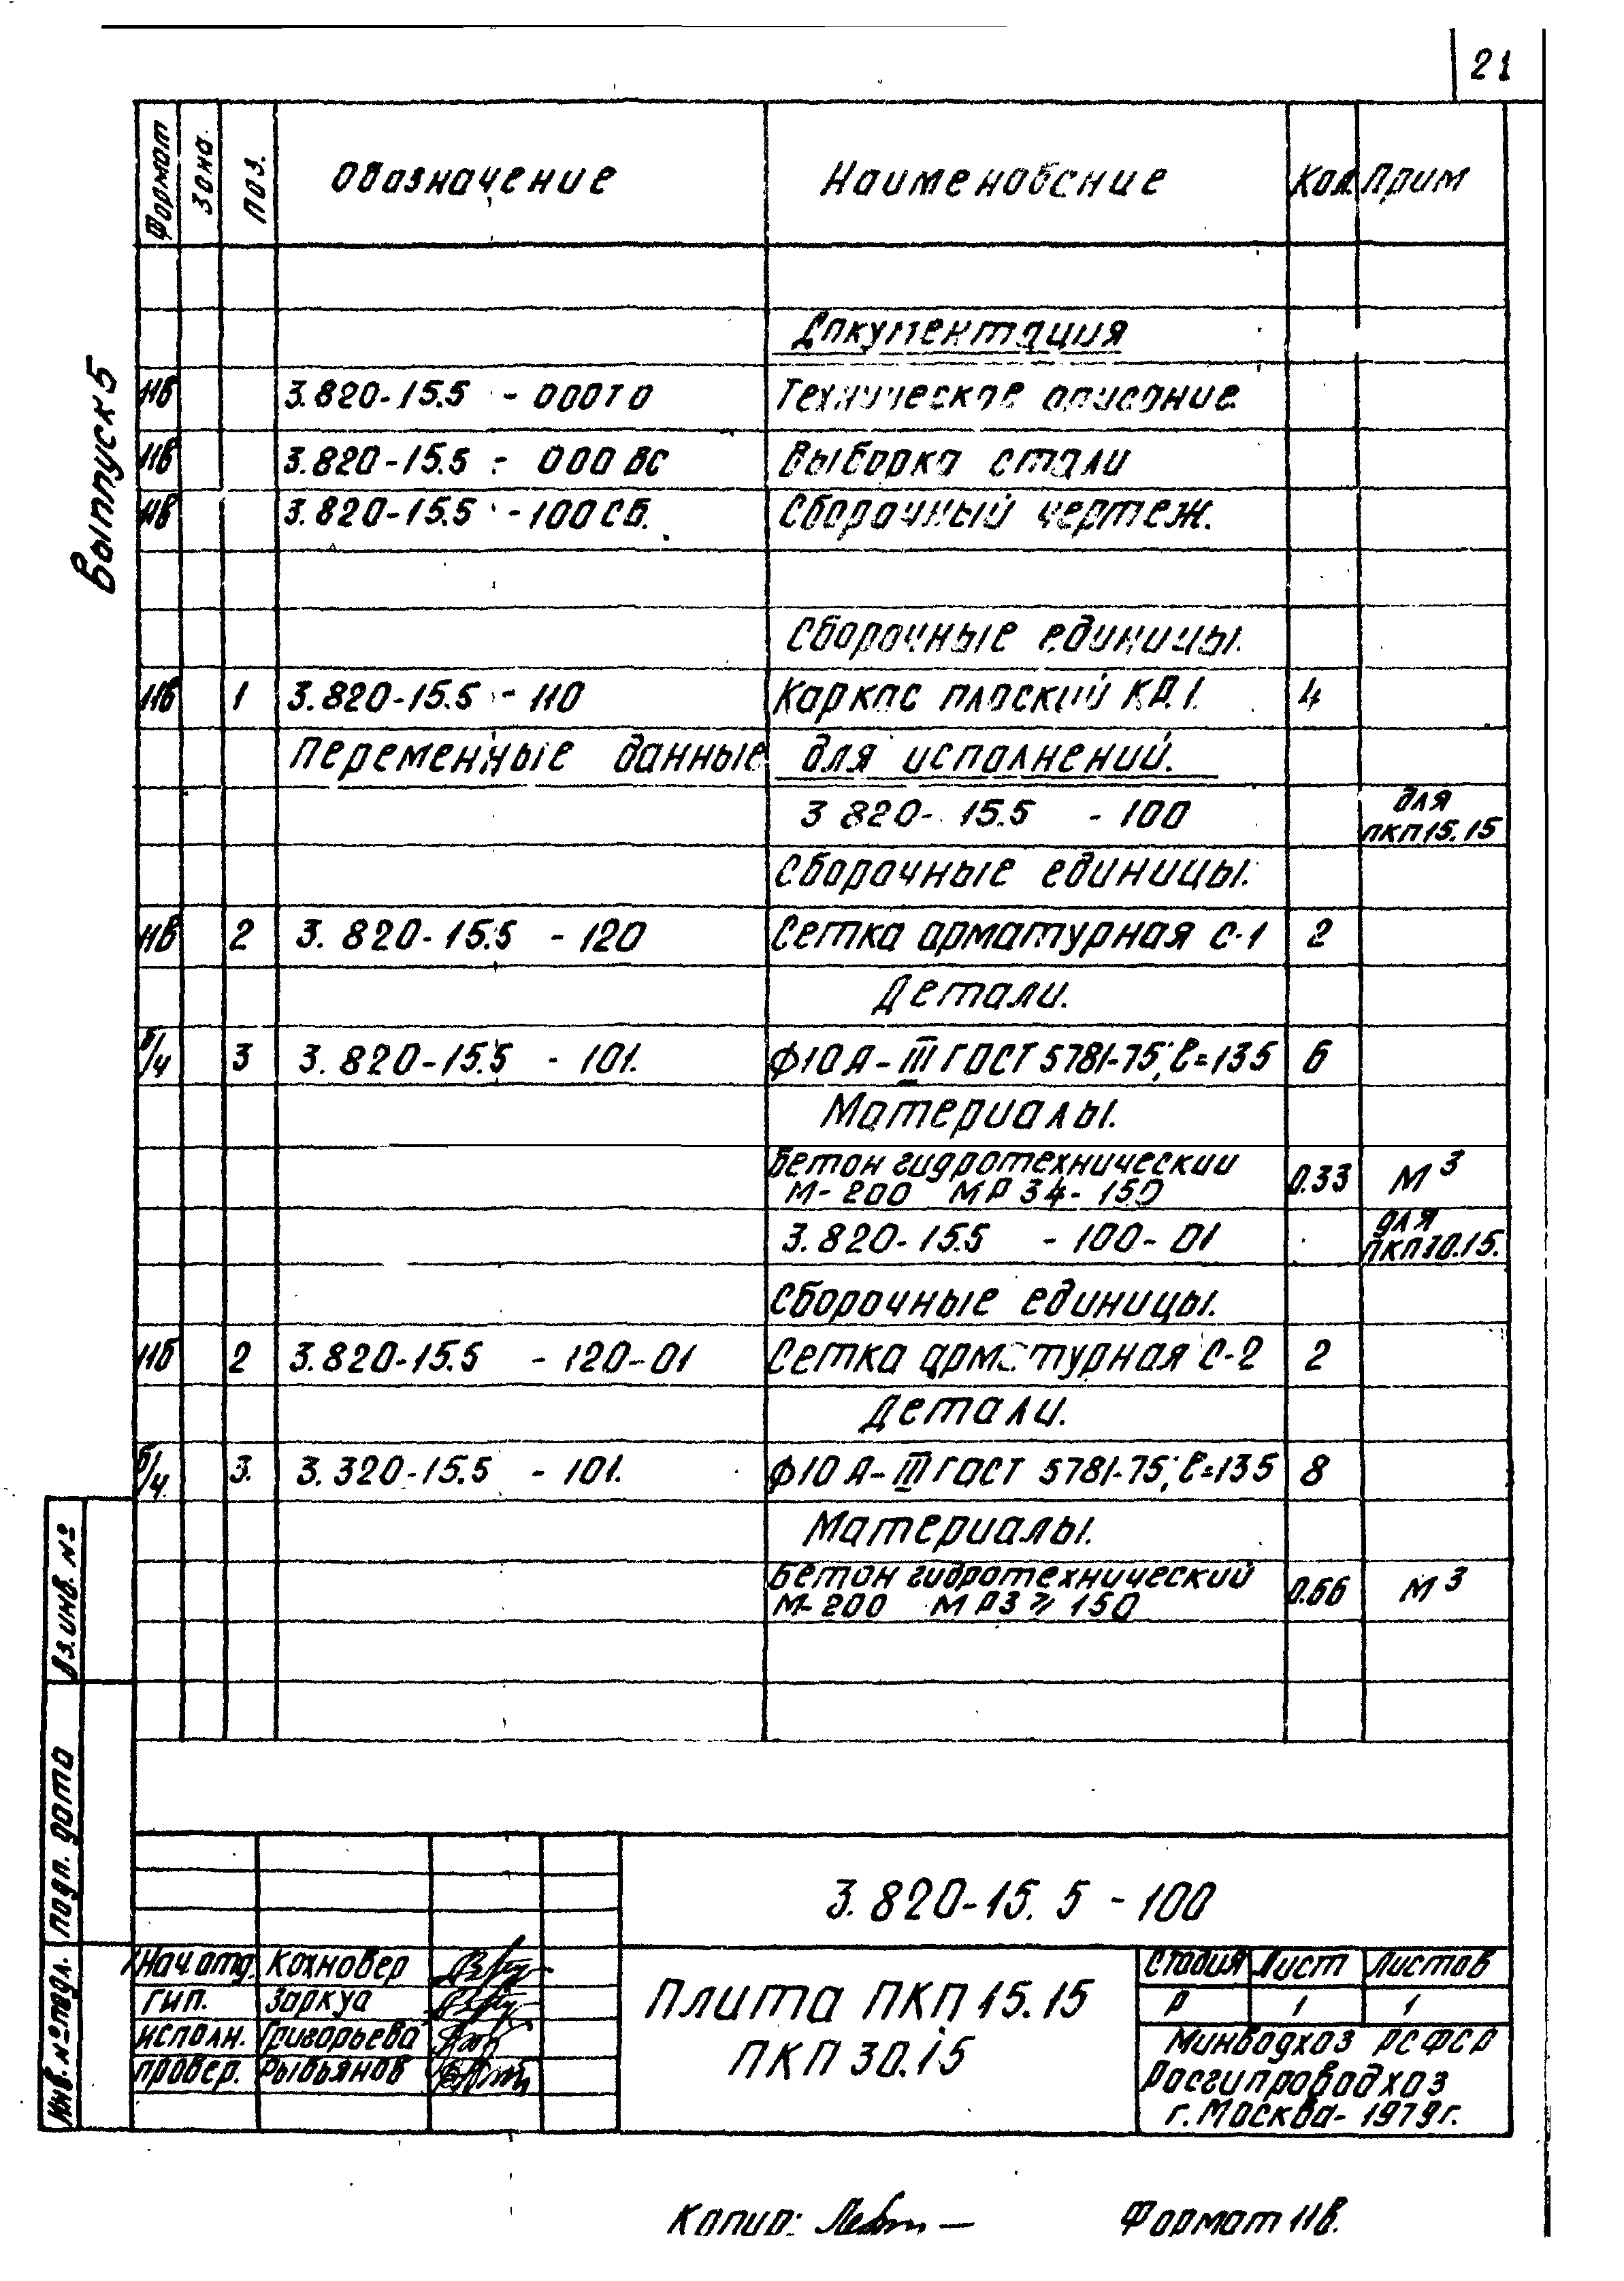 21
Формат Зона. Поз. Обозначение Наименовсние Кол. Прим
Выппуск 5
Документация
11в 3.820-15.5 - 000ТО Техническое описание
11в 3.820-15.5 - 000 ВС Выборка стали
11в 3.820-15.5 - 100 СБ. Сборочный чертеж.
Сборочные единицы.
11в 1 3.820-15.5 - 110 Каркас плоский КР.1. 4
Переменные данные для исполнений.
3 820-15.5 - 100 для
ПКП 15.15
Сборочные единицы.
11в 2 3.820-15.5 - 120 Сетка арматурная С-1 2
Детали.
б/ч 3 3.820-15.5 - 101. ф10 А-III ГОСТ 5781-75; ℓ=135 6
Материалы.
Бетон гидротехнический
М-200 МРЗ4-150 0.33 м³
3.820-15.5 - 100-01 для
ПКП 30.15.
Сборочные единицы.
11б 2 3.820-15.5 - 120-01 Сетка арматурная С-2 2
Детали.
б/ч 3. 3.320-15.5 - 101. ф10 А-III ГОСТ 5781-75; ℓ=135 8
Материалы.
Бетон гидротехнический
М-200 МРЗ ⩾ 150 0.66 м³
Вз.инв. №
Подп. дата
Инв.№подл.
3.820-15.5 - 100
Нач.отд. Кохновер
ГИП. Заркуа
Исполн. Григорьева
Провер. Рыбьянов
Плита ПКП 15.15
ПКП 30.15
Стадия Лист Листов
Р 1 1
Минводхоз РСФСР
Росгипроводхоз
г. Москва - 1979г.
Копир: Формат 11в.